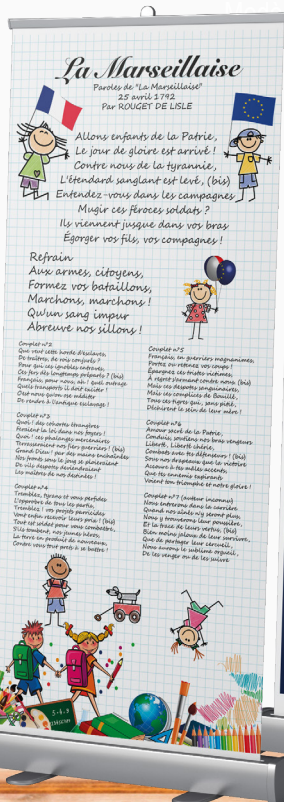 La Marseillaise
Paroles de "La Marseillaise"
25 avril 1792
Par ROUGET DE LISLE
Allons enfants de la Patrie,
Le jour de gloire est arrivé !
Contre nous de la tyrannie,
L'étendard sanglant est levé, (bis)
Entendez-vous dans les campagnes
Mugir ces féroces soldats ?
Ils viennent jusque dans vos bras
Égorger vos fils, vos compagnes !
Refrain
Aux armes, citoyens,
Formez vos bataillons,
Marchons, marchons !
Qu'un sang impur
Abreuve nos sillons !
Couplet n°2
Que veut cette horde d'esclaves,
De traîtres, de rois conjurés ?
Pour qui ces ignobles entraves,
Ces fers dès longtemps préparés ? (bis)
Français, pour nous, ah ! quel outrage
Quels transports il doit exciter !
C'est nous qu'on ose méditer
De rendre à l'antique esclavage !
Couplet n°3
Quoi ! des cohortes étrangères
Feraient la loi dans nos foyers !
Quoi ! ces phalanges mercenaires
Terrasseraient nos fiers guerriers ! (bis)
Grand Dieu ! par des mains enchaînées
Nos fronts sous le joug se ploieraient
De vils despotes deviendraient
Les maîtres de nos destinées !
Couplet n°4
Tremblez, tyrans et vous perfides
L'opprobre de tous les partis,
Tremblez ! vos projets parricides
Vont enfin recevoir leurs prix ! (bis)
Tout est soldat pour vous combattre,
S'ils tombent, nos jeunes héros,
La terre en produit de nouveaux,
Contre vous tout prêts à se battre !
Couplet n°5
Français, en guerriers magnanimes,
Portez ou retenez vos coups !
Épargnez ces tristes victimes,
À regret s'armant contre nous (bis)
Mais ces despotes sanguinaires,
Mais ces complices de Bouillé,
Tous ces tigres qui, sans pitié,
Déchirent le sein de leur mère !
Couplet n°6
Amour sacré de la Patrie,
Conduis, soutiens nos bras vengeurs
Liberté, Liberté chérie,
Combats avec tes défenseurs ! (bis)
Sous nos drapeaux que la victoire
Accoure à tes mâles accents,
Que tes ennemis expirants
Voient ton triomphe et notre gloire !
Couplet n°7 (auteur inconnu)
Nous entrerons dans la carrière
Quand nos aînés n'y seront plus,
Nous y trouverons leur poussière,
Et la trace de leurs vertus, (bis)
Bien moins jaloux de leur survivre,
Que de partager leur cercueil,
Nous aurons le sublime orgueil,
De les venger ou de les suivre